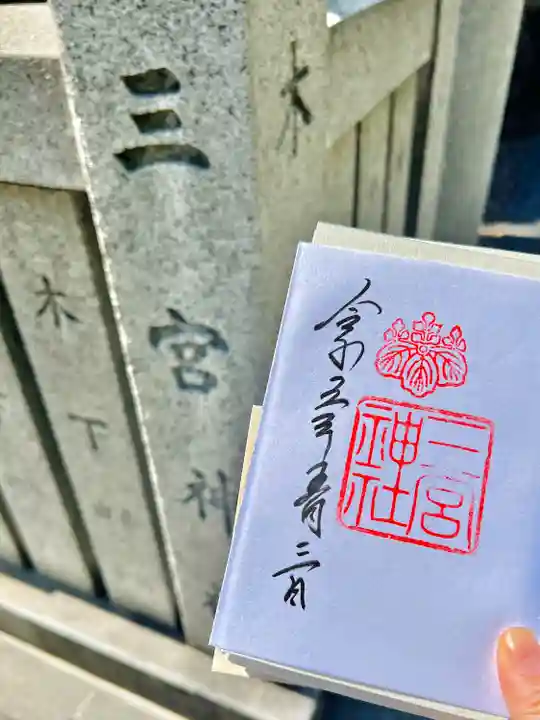 三宮神
木
木下
令和五年五月三日
三宮
神社